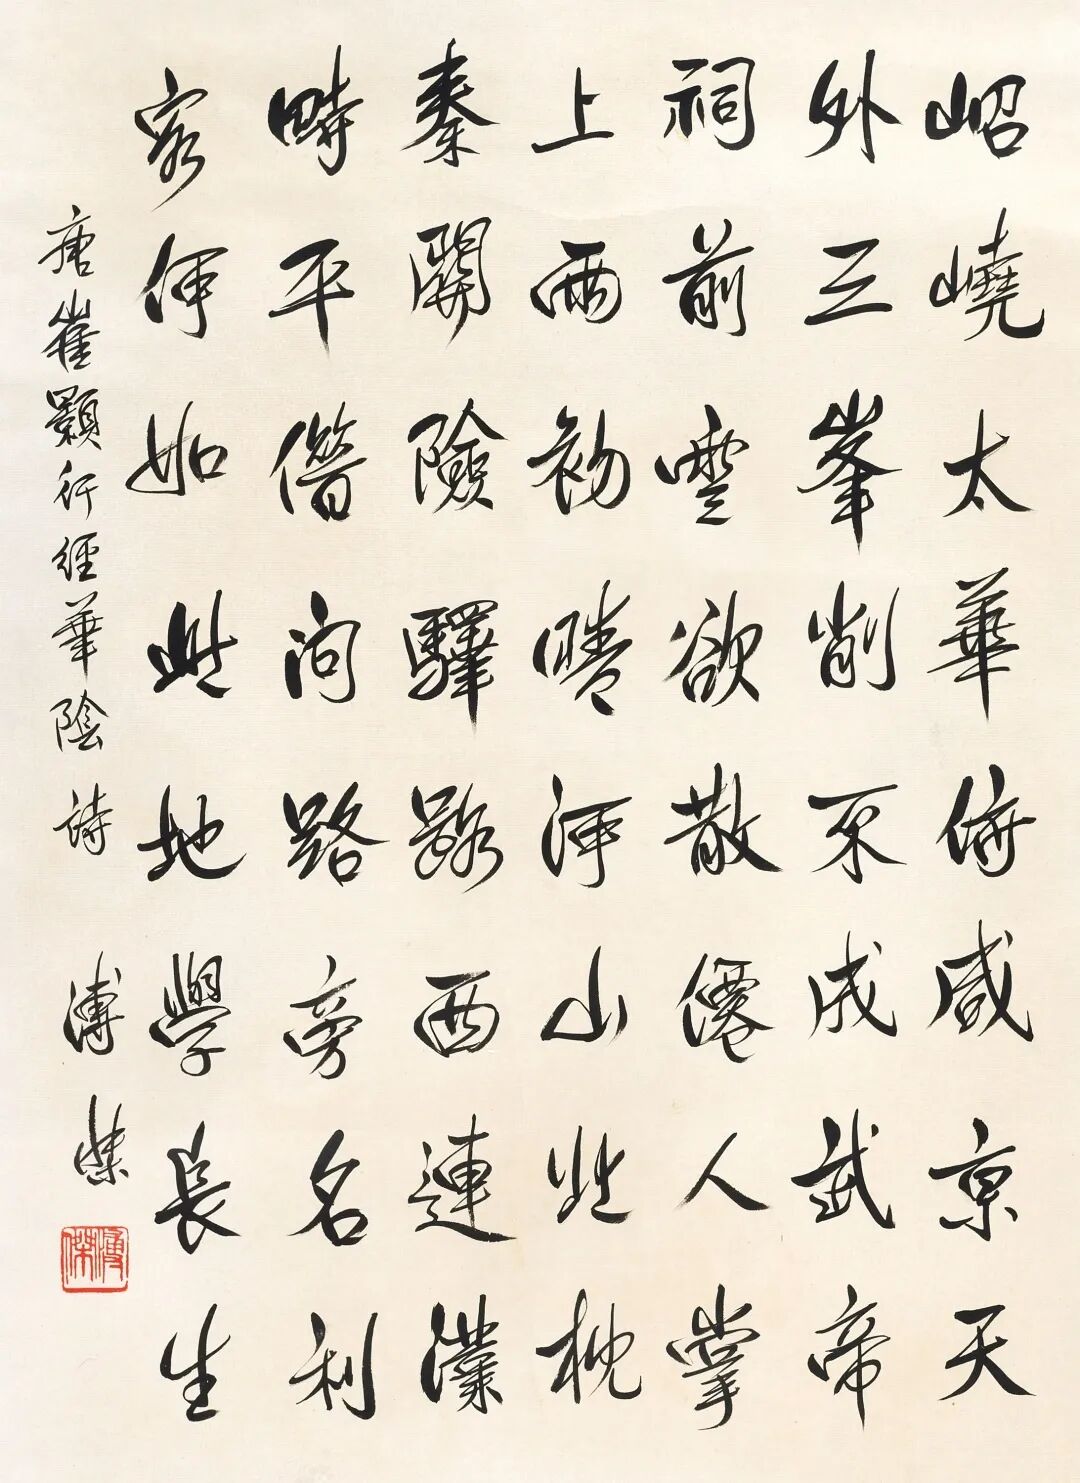 岹嶢太華俯咸京天
外三峯削不成武帝
祠前雲欲散僊人掌
上雨初晴河山北枕
秦關險驛路西連漢
畤平借問路旁名利
客何如此地學長生
唐崔顥行經華陰詩
溥傑
溥傑